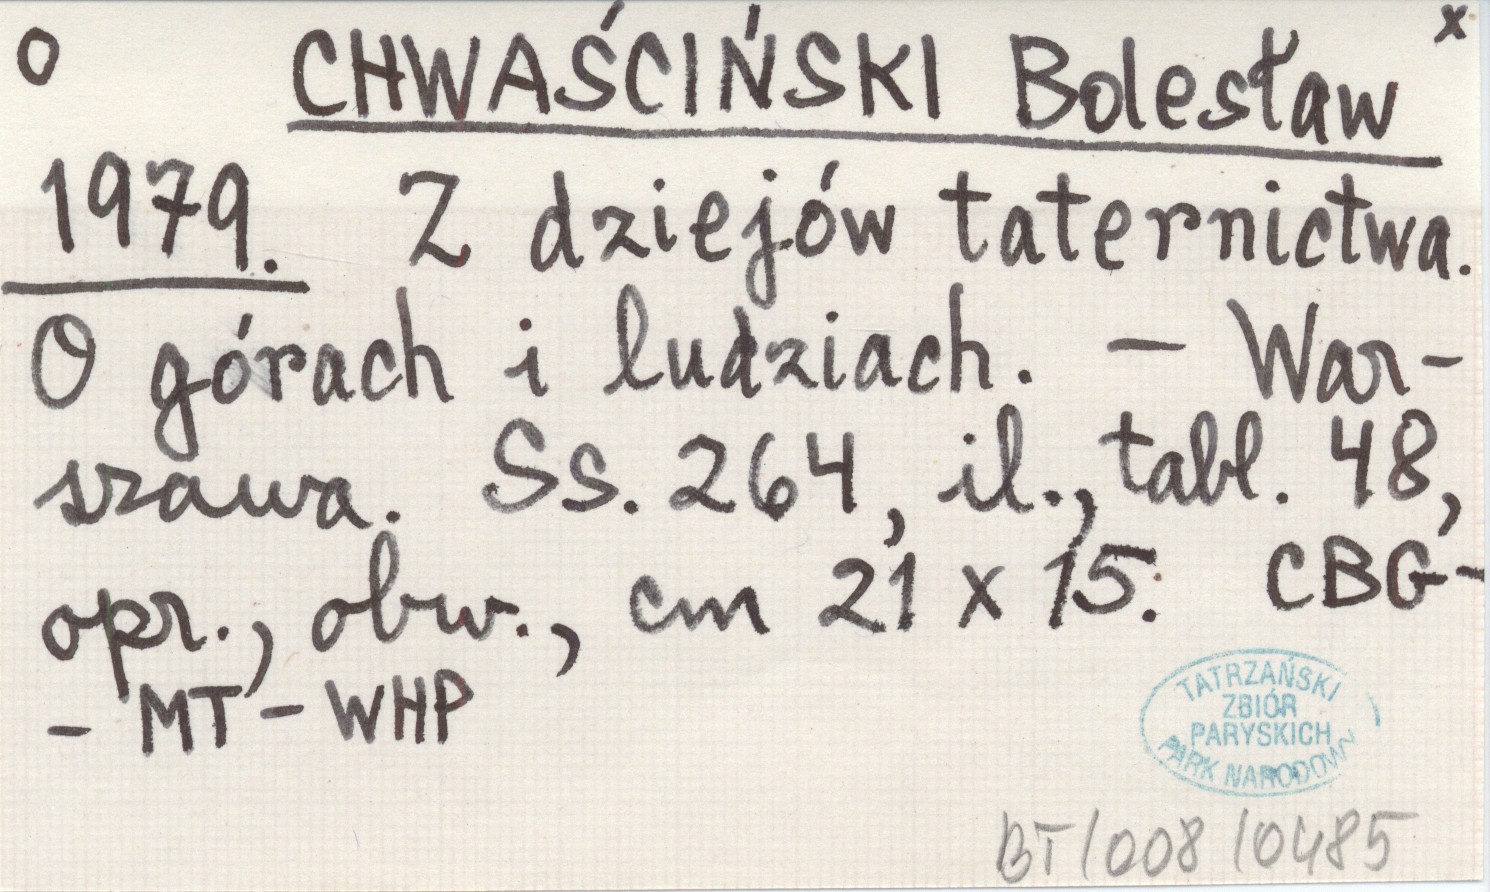 o CHWAŚCIŃSKI Bolesław x
1979. Z dziejów taternictwa.
O górach i ludziach. — War-
szawa. Ss. 264, il., tabl. 48,
opr., obw., cm 21 x 15. CBG-
- MT - WHP
TATRZAŃSKI
ZBIÓR
PARYSKICH
PARK NARODOWY
BT/008/0485